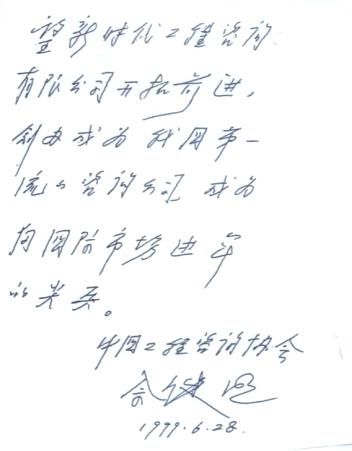 望新时代工程咨询
有限公司开拓前进,
创办成为我国第一
流的咨询公司 成为
向国际市场进军
的尖兵。
中国工程咨询协会
1999.6.28.